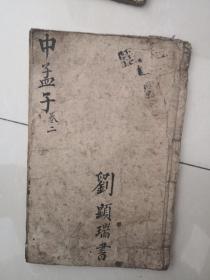 中孟子卷二
劉顕瑞書